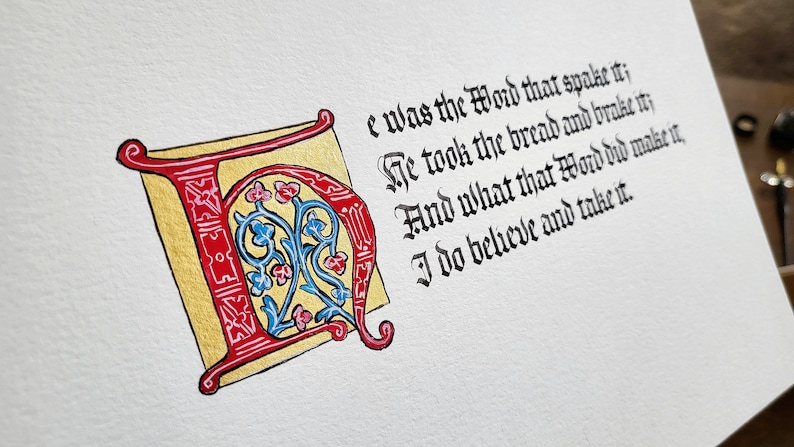 He was the Word that spake it;
He took the bread and brake it;
And what that Word did make it,
I do believe and take it.